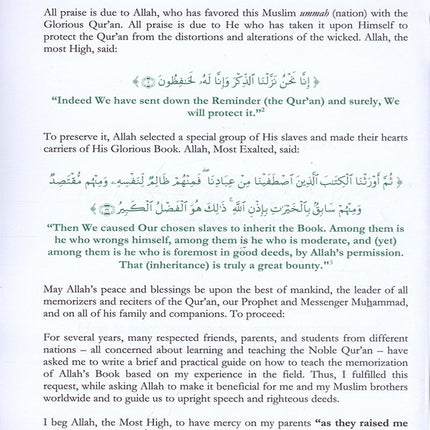 All praise is due to Allah, who has favored this Muslim ummah (nation) with the
Glorious Qur'an. All praise is due to He who has taken it upon Himself to
protect the Qur'an from the distortions and alterations of the wicked. Allah, the
most High, said:
﴿ إِنَّا نَحْنُ نَزَّلْنَا ٱلذِّكْرَ وَإِنَّا لَهُۥ لَحَـٰفِظُونَ ﴾
“Indeed We have sent down the Reminder (the Qur'an) and surely, We
will protect it.”2
To preserve it, Allah selected a special group of His slaves and made their hearts
carriers of His Glorious Book. Allah, Most Exalted, said:
﴿ ثُمَّ أَوْرَثْنَا ٱلْكِتَـٰبَ ٱلَّذِينَ ٱصْطَفَيْنَا مِنْ عِبَادِنَا ۖ فَمِنْهُمْ ظَالِمٌ لِّنَفْسِهِۦ وَمِنْهُم مُّقْتَصِدٌ
وَمِنْهُمْ سَابِقٌۢ بِٱلْخَيْرَٰتِ بِإِذْنِ ٱللَّهِ ۚ ذَٰلِكَ هُوَ ٱلْفَضْلُ ٱلْكَبِيرُ ﴾
“Then We caused Our chosen slaves to inherit the Book. Among them is
he who wrongs himself, among them is he who is moderate, and (yet)
among them is he who is foremost in good deeds, by Allah's permission.
That (inheritance) is truly a great bounty.”3
May Allah's peace and blessings be upon the best of mankind, the leader of all
memorizers and reciters of the Qur'an, our Prophet and Messenger Muḥammad,
and on all of his family and companions. To proceed:
For several years, many respected friends, parents, and students from different
nations – all concerned about learning and teaching the Noble Qur'an – have
asked me to write a brief and practical guide on how to teach the memorization
of Allah's Book based on my experience in the field. Thus, I fulfilled this
request, while asking Allah to make it beneficial for me and my Muslim brothers
worldwide and to guide us to upright speech and righteous deeds.
I beg Allah, the Most High, to have mercy on my parents “as they raised me